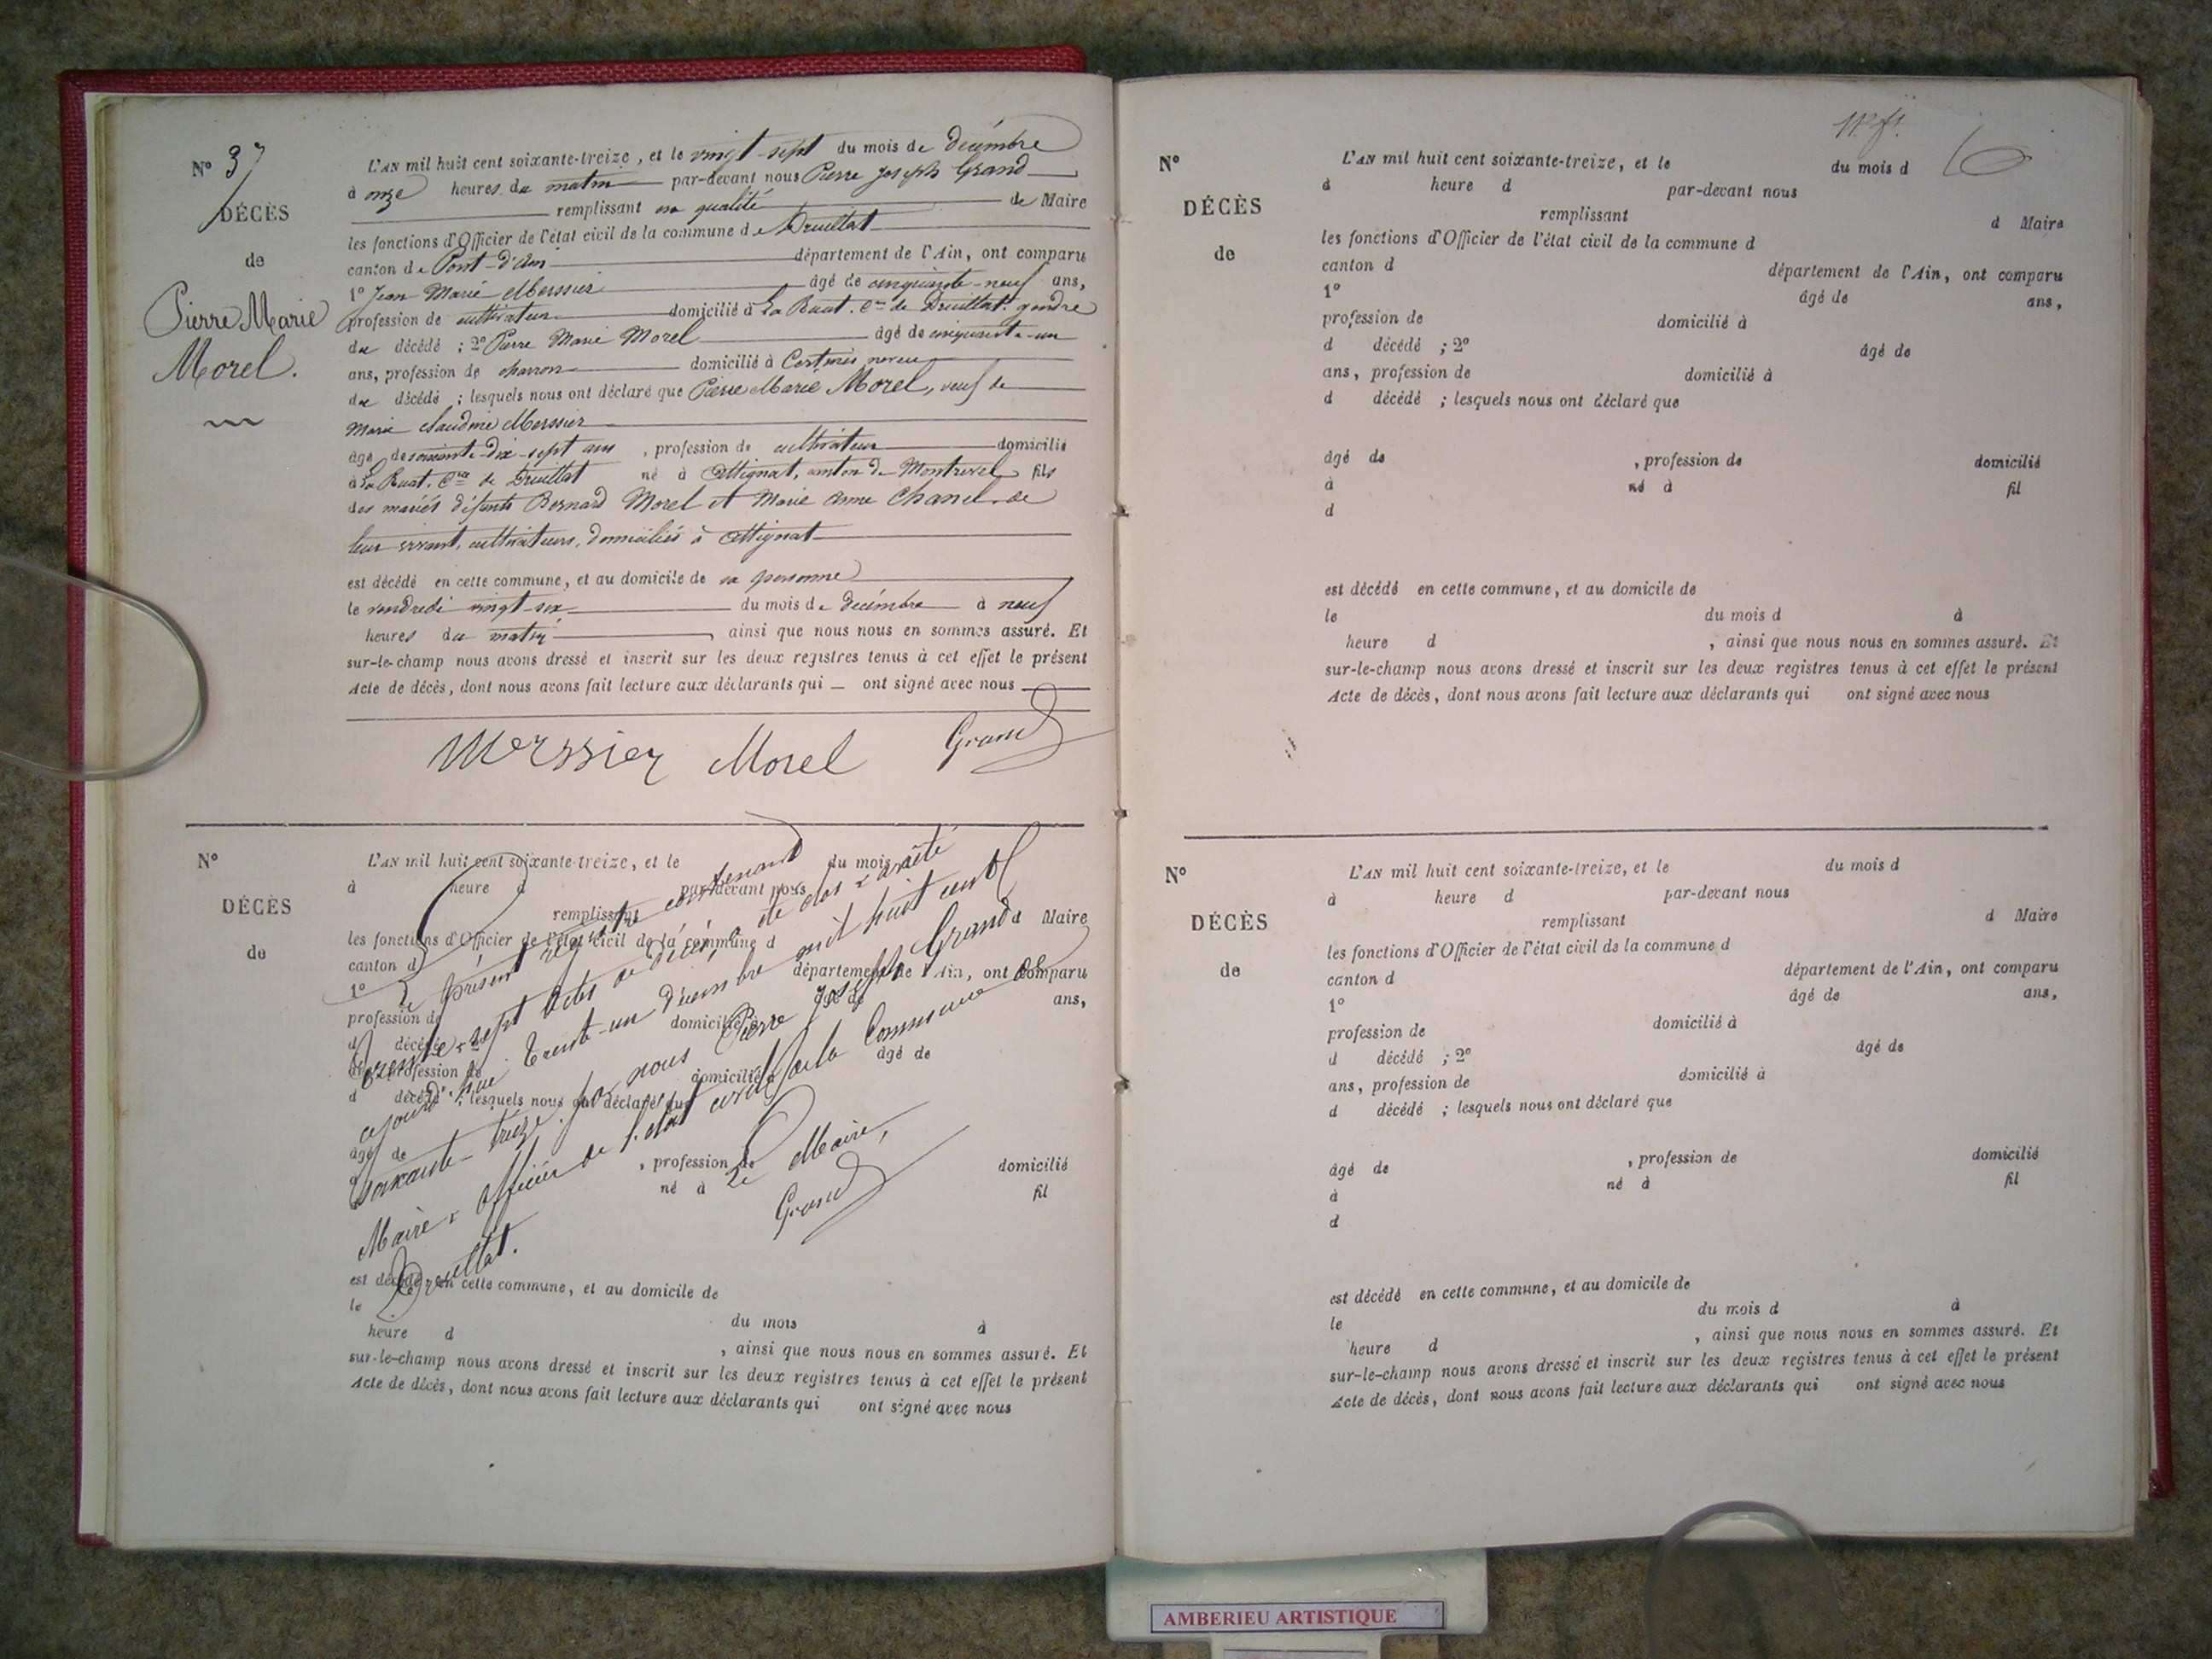 Nº 37
DÉCÈS
de
Pierre Marie
Morel.
L'AN mil huit cent soixante-treize, et le vingt-sept du mois de décembre
à onze heures du matin par-devant nous Pierre Joseph Grand
remplissant en qualité de Maire
les fonctions d'Officier de l'état civil de la commune de Druillat
canton de Pont-d'Ain département de l'Ain, ont comparu
1º Jean Marie Merssier âgé de cinquante-neuf ans,
profession de cultivateur domicilié à La Ruat. Cne de Druillat. gendre
du décédé ; 2º Pierre Marie Morel âgé de cinquante-un
ans, profession de charron domicilié à Certines neveu
du décédé ; lesquels nous ont déclaré que Pierre Marie Morel, veuf de
Marie Claudine Merssier
âgé de soixante-dix-sept ans, profession de cultivateur domicilié
à La Ruat. Cne de Druillat né à Attignat, canton de Montrevel fils
des mariés défunts Bernard Morel et Marie Anne Chanel. de
leur vivant, cultivateurs, domiciliés à Attignat
est décédé en cette commune, et au domicile de sa personne
le vendredi vingt-six du mois de décembre à neuf
heures du matin, ainsi que nous nous en sommes assuré. Et
sur-le-champ nous avons dressé et inscrit sur les deux registres tenus à cet effet le présent
Acte de décès, dont nous avons fait lecture aux déclarants qui ont signé avec nous
Merssier Morel Grand
Nº
DÉCÈS
de
L'AN mil huit cent soixante-treize, et le du mois
à heure d par-devant nous
remplissant d Maire
les fonctions d'Officier de l'état civil de la commune d
canton d département de l'Ain, ont comparu
1º âgé de ans,
profession de domicilié à
d décédé ; 2º âgé de
ans, profession de domicilié à
d décédé ; lesquels nous ont déclaré que
âgé de , profession de domicilié
né à fil
est décédé en cette commune, et au domicile de
le du mois à
heure d , ainsi que nous nous en sommes assuré. Et
sur-le-champ nous avons dressé et inscrit sur les deux registres tenus à cet effet le présent
Acte de décès, dont nous avons fait lecture aux déclarants qui ont signé avec nous
Le présent registre contenant
trente-sept actes de décès, a été clos & arrêté
cejourd'hui trente-un décembre mil huit cent
soixante-treize. par nous Pierre Joseph Grand
Maire & officier de l'état civil de la Commune de
Druillat.
Le Maire,
Grand
Nº
DÉCÈS
de
L'AN mil huit cent soixante-treize, et le du mois d
à heure d par-devant nous
remplissant d Maire
les fonctions d'Officier de l'état civil de la commune d
canton d département de l'Ain, ont comparu
1º âgé de ans,
profession de domicilié à
d décédé ; 2º âgé de
ans, profession de domicilié à
d décédé ; lesquels nous ont déclaré que
âgé de , profession de domicilié
à né à fil
d
est décédé en cette commune, et au domicile de
le du mois d à
heure d , ainsi que nous nous en sommes assuré. Et
sur-le-champ nous avons dressé et inscrit sur les deux registres tenus à cet effet le présent
Acte de décès, dont nous avons fait lecture aux déclarants qui ont signé avec nous
Nº
DÉCÈS
de
L'AN mil huit cent soixante-treize, et le du mois d
à heure d par-devant nous
remplissant d Maire
les fonctions d'Officier de l'état civil de la commune d
canton d département de l'Ain, ont comparu
1º âgé de ans,
profession de domicilié à
d décédé ; 2º âgé de
ans, profession de domicilié à
d décédé ; lesquels nous ont déclaré que
âgé de , profession de domicilié
à né à fil
d
est décédé en cette commune, et au domicile de
le du mois d à
heure d , ainsi que nous nous en sommes assuré. Et
sur-le-champ nous avons dressé et inscrit sur les deux registres tenus à cet effet le présent
Acte de décès, dont nous avons fait lecture aux déclarants qui ont signé avec nous
AMBERIEU ARTISTIQUE